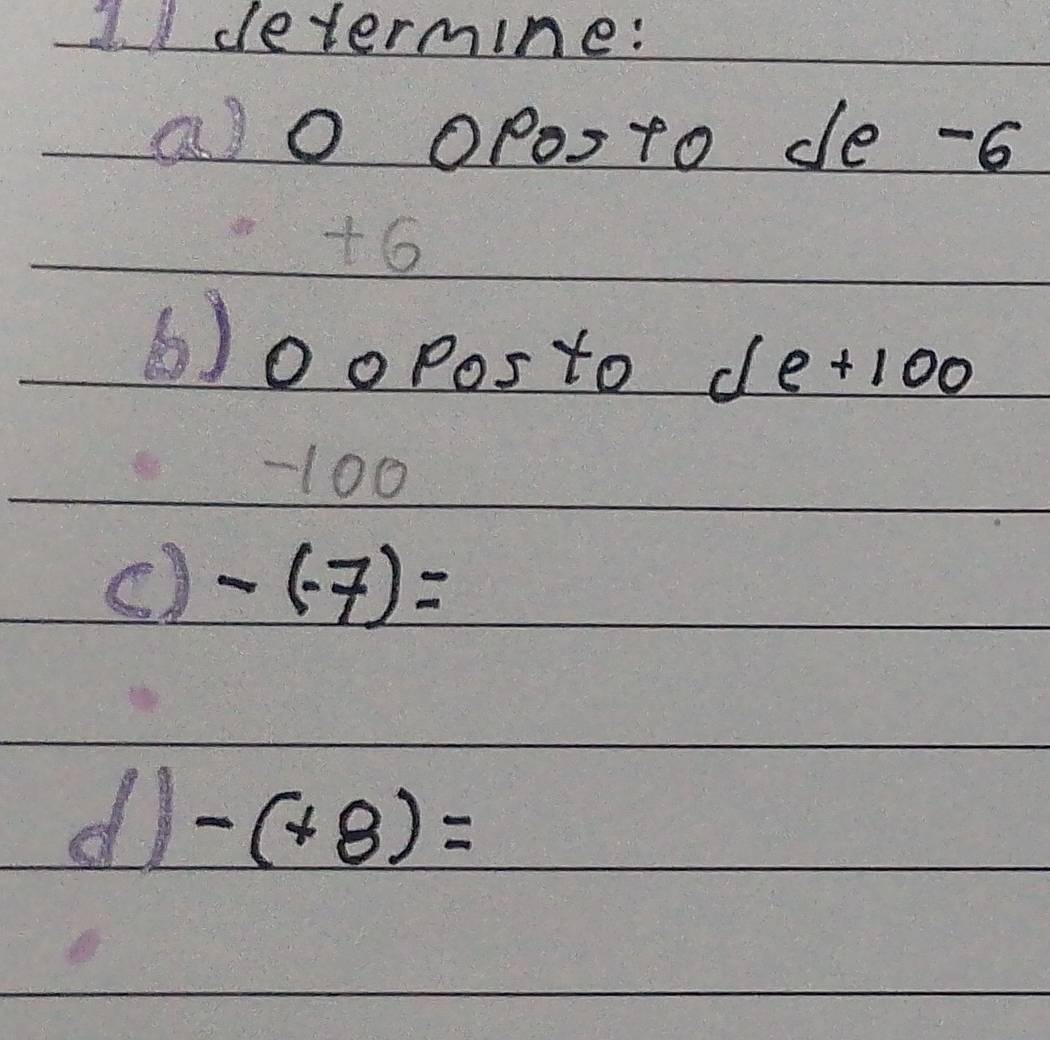 1) determine:
a) O oposto de -6
+6
b) O oposto de +100
-100
c) - (-7) =
d) - (+8) =